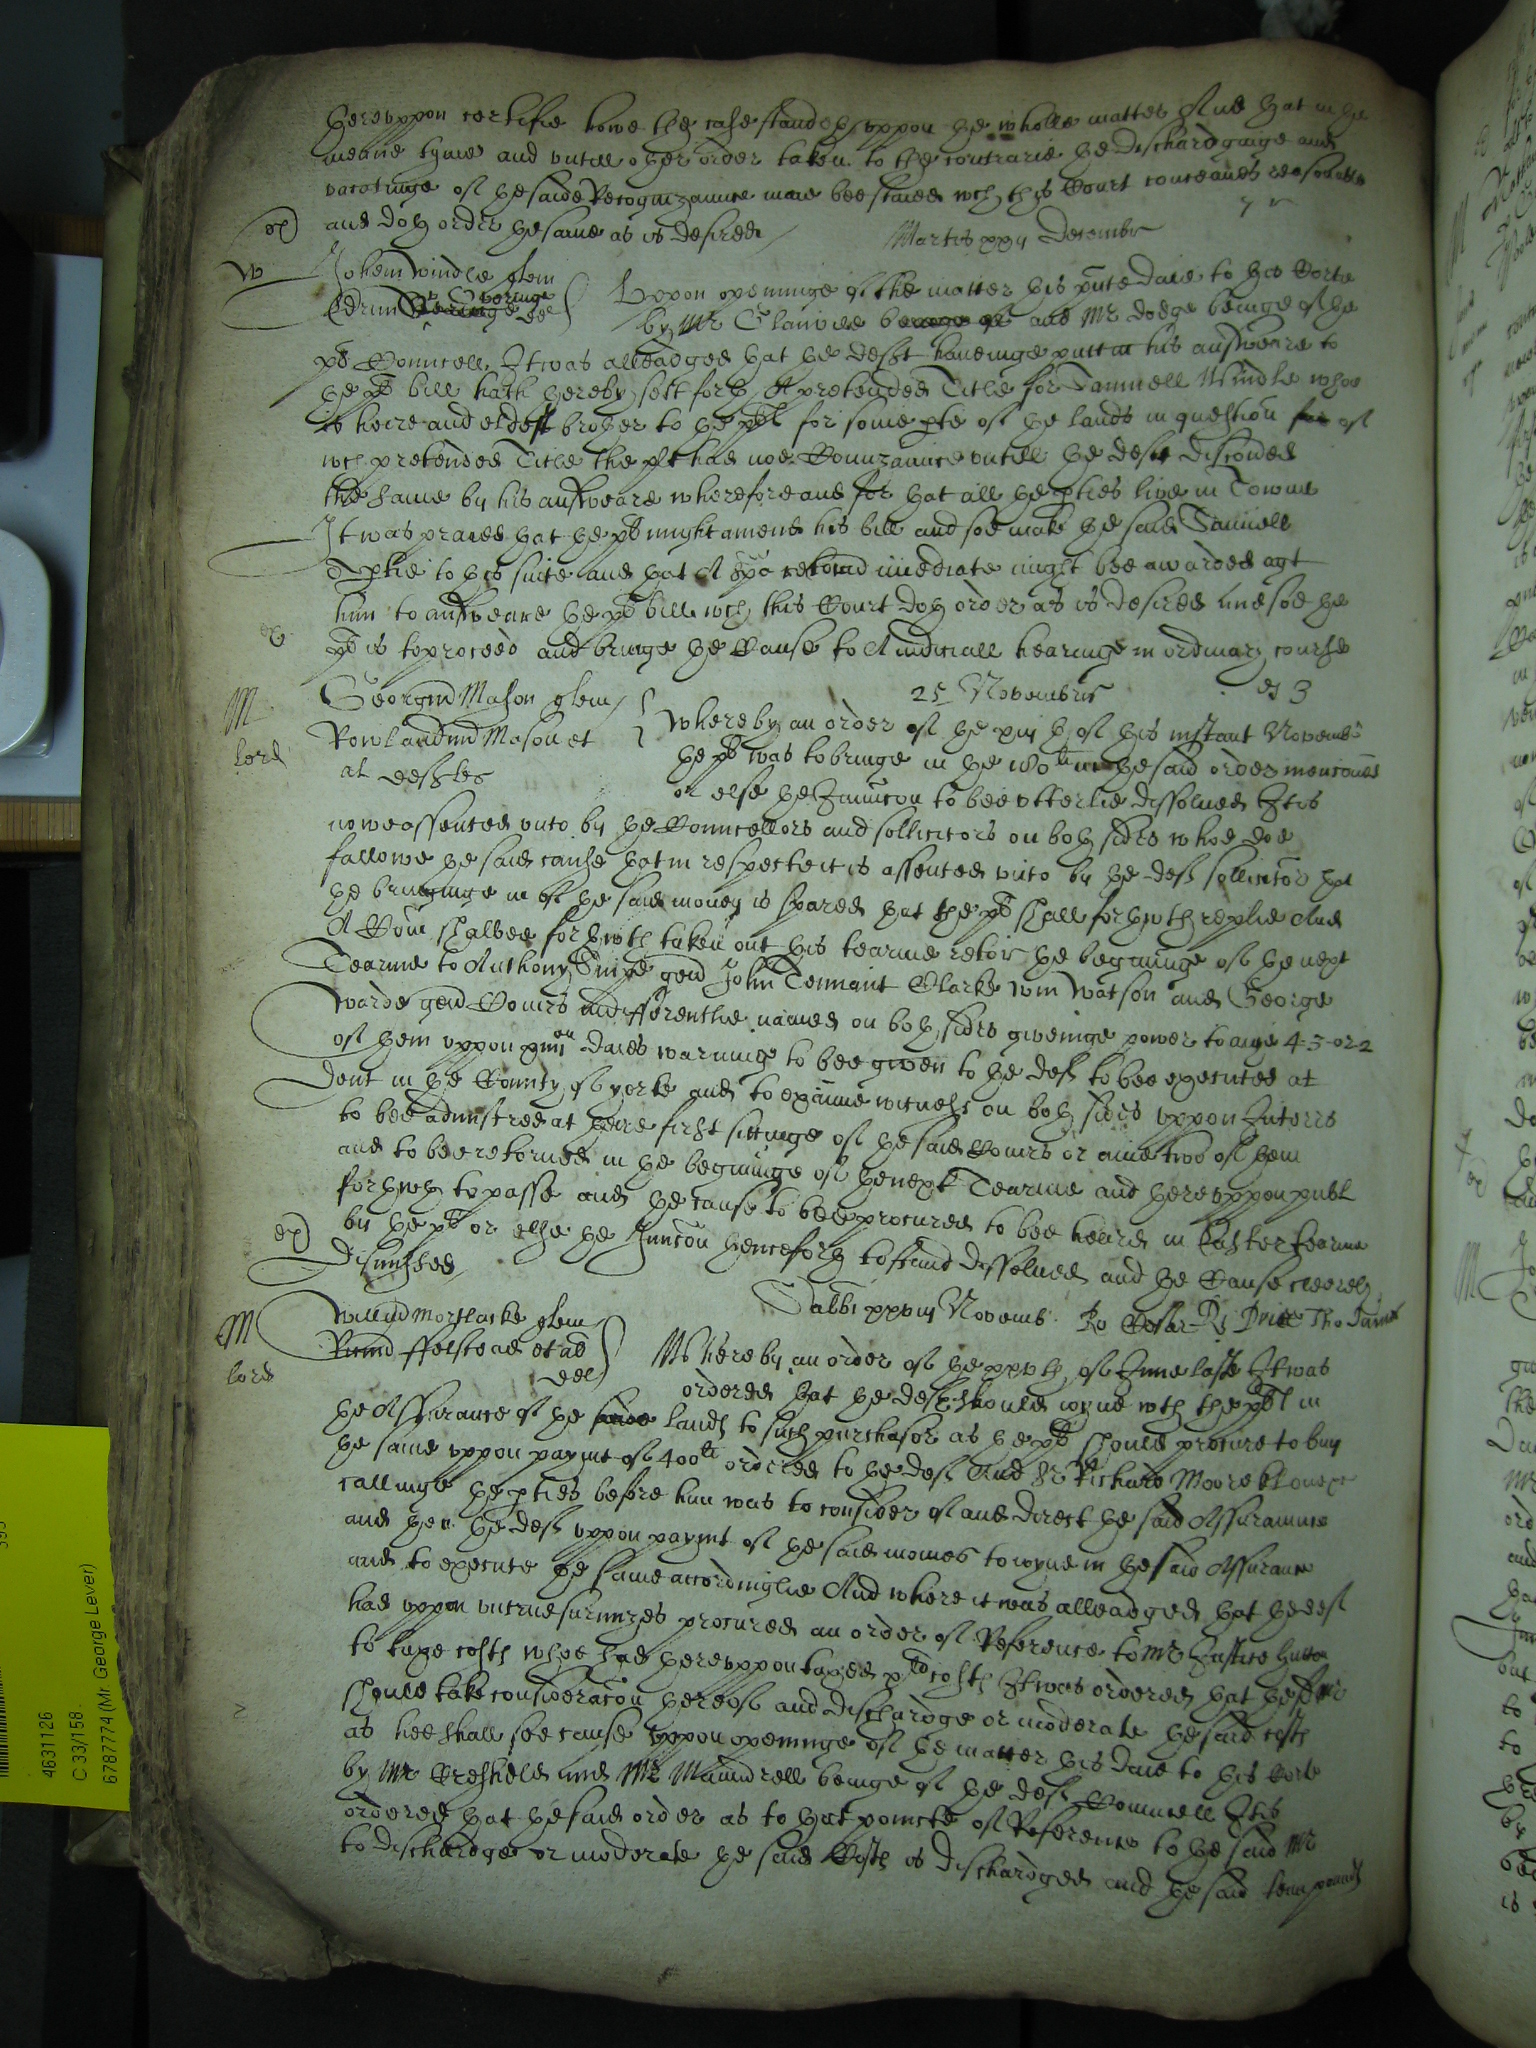 hereuppon certifie howe the case standeth uppon the wholle matter And that in the
meane tyme and untill other order taken to the contrarie the dischardginge and
vacatinge of the saide Recognizaunce maie bee staied wch this Court conceaues reasonable
and doth order the same as is desired
Martis xxii Decembr
W
Johem Windle quem
Edrum deft
Uppon openninge of the matter this pnte daie to this Corte
by Mr Glanvile and Mr Dodge beinge of the
plts Councell, It was alleadged that the deft haueinge putt in his answeare to
the plts bill hath thereby sett forth A pretended Title for Samuell Windle whoe
is heire and eldest brother to the plt for some pte of the lands in question of
wch pretended Title the plt had noe Conuzaunce untill the deft discouered
the same by his answeare wherefore and for that all the pties live in Towne
It was praied that the plt might amend his bill and soe make the said Samuell
A ptie to this suite and that A spa retord imediate might bee awarded agt
him to answeare the plts bill wch this Court doth order as is desired and soe the
plt is to proceed and bringe the Cause to A Judiciall hearinge in ordinary course
M
lord
Georgiu Mason quem
Rowlandum Mason et
al defftes
25 Novembris
Whereby an order of the xiiith of this instant November
the plt was to bringe in the 180li in the said order mencioned
or else the Iniuncon to bee utterlie dissolued It is
nowe assented unto by the Councellors and sollicitors on both sides whoe doe
followe the said cause that in respecte it is assented unto by the defts sollicitor that
the bringinge in of the said money is spared that the plt shall forthwth replie And
A Com shalbee forthwth taken out this tearme retor the beginninge of the next
Tearme to Anthony gent John Tennant Clarke Wm Watson and George
Warde gent Comrs indifferentlie named on both sides giveinge power to anie 4-3-or 2
of them uppon daies warninge to bee given to the deft to bee executed at
Dent in the County of Yorke and to examine witnesses on both sides uppon Interrs
to bee administred at theire first sittinge of the said Comrs or anie two of them
and to bee retorned in the beginninge of the next Tearme and thereuppon publ
forthwth to passe and the cause to bee procured to bee heard in Easter tearme
by the plt or else the Iniuncon thenceforth to stand dissolued and the Cause cleerely
dismissed
Sabbi xxviii Novemb. Ro Cesar Tho James
M
lord
Willum Mortlacke quem
Ricum ffelstead et al
def
Whereby an order of the xxvth of June laste It was
ordered that the deft should ioyne wth the plt in
the Assurance of the lands to such purchasor as the plt should procure to buy
the same uppon paymt of 400li ordered to the deft And Sr Richard Moore
callinge the pties before him was to consider of and direct the said Assuraunce
and then the deft uppon paymt of the said monies to ioyne in the said Assurance
and to execute the same accordinglie And where it was alleadged that the deft
had uppon untrue surmizes procured an order of Reference to Mr Justice Hutton
to taxe costs whoe had thereuppon taxed costs It was ordered that the said Mr
should take consideracon thereof and dischardge or moderate the said costs
as hee shall see cause uppon openinge of the matter this daie to this Corte
by Mr Cresheld and Mr Maundrell beinge of the defts Councell It is
ordered that the said order as to that poincte of Reference to the said Mr
to dischardge or moderate the said Costs is dischardged and the said tenn pounds
4631126
C 33/158
6787774 (Mr. George Lever)